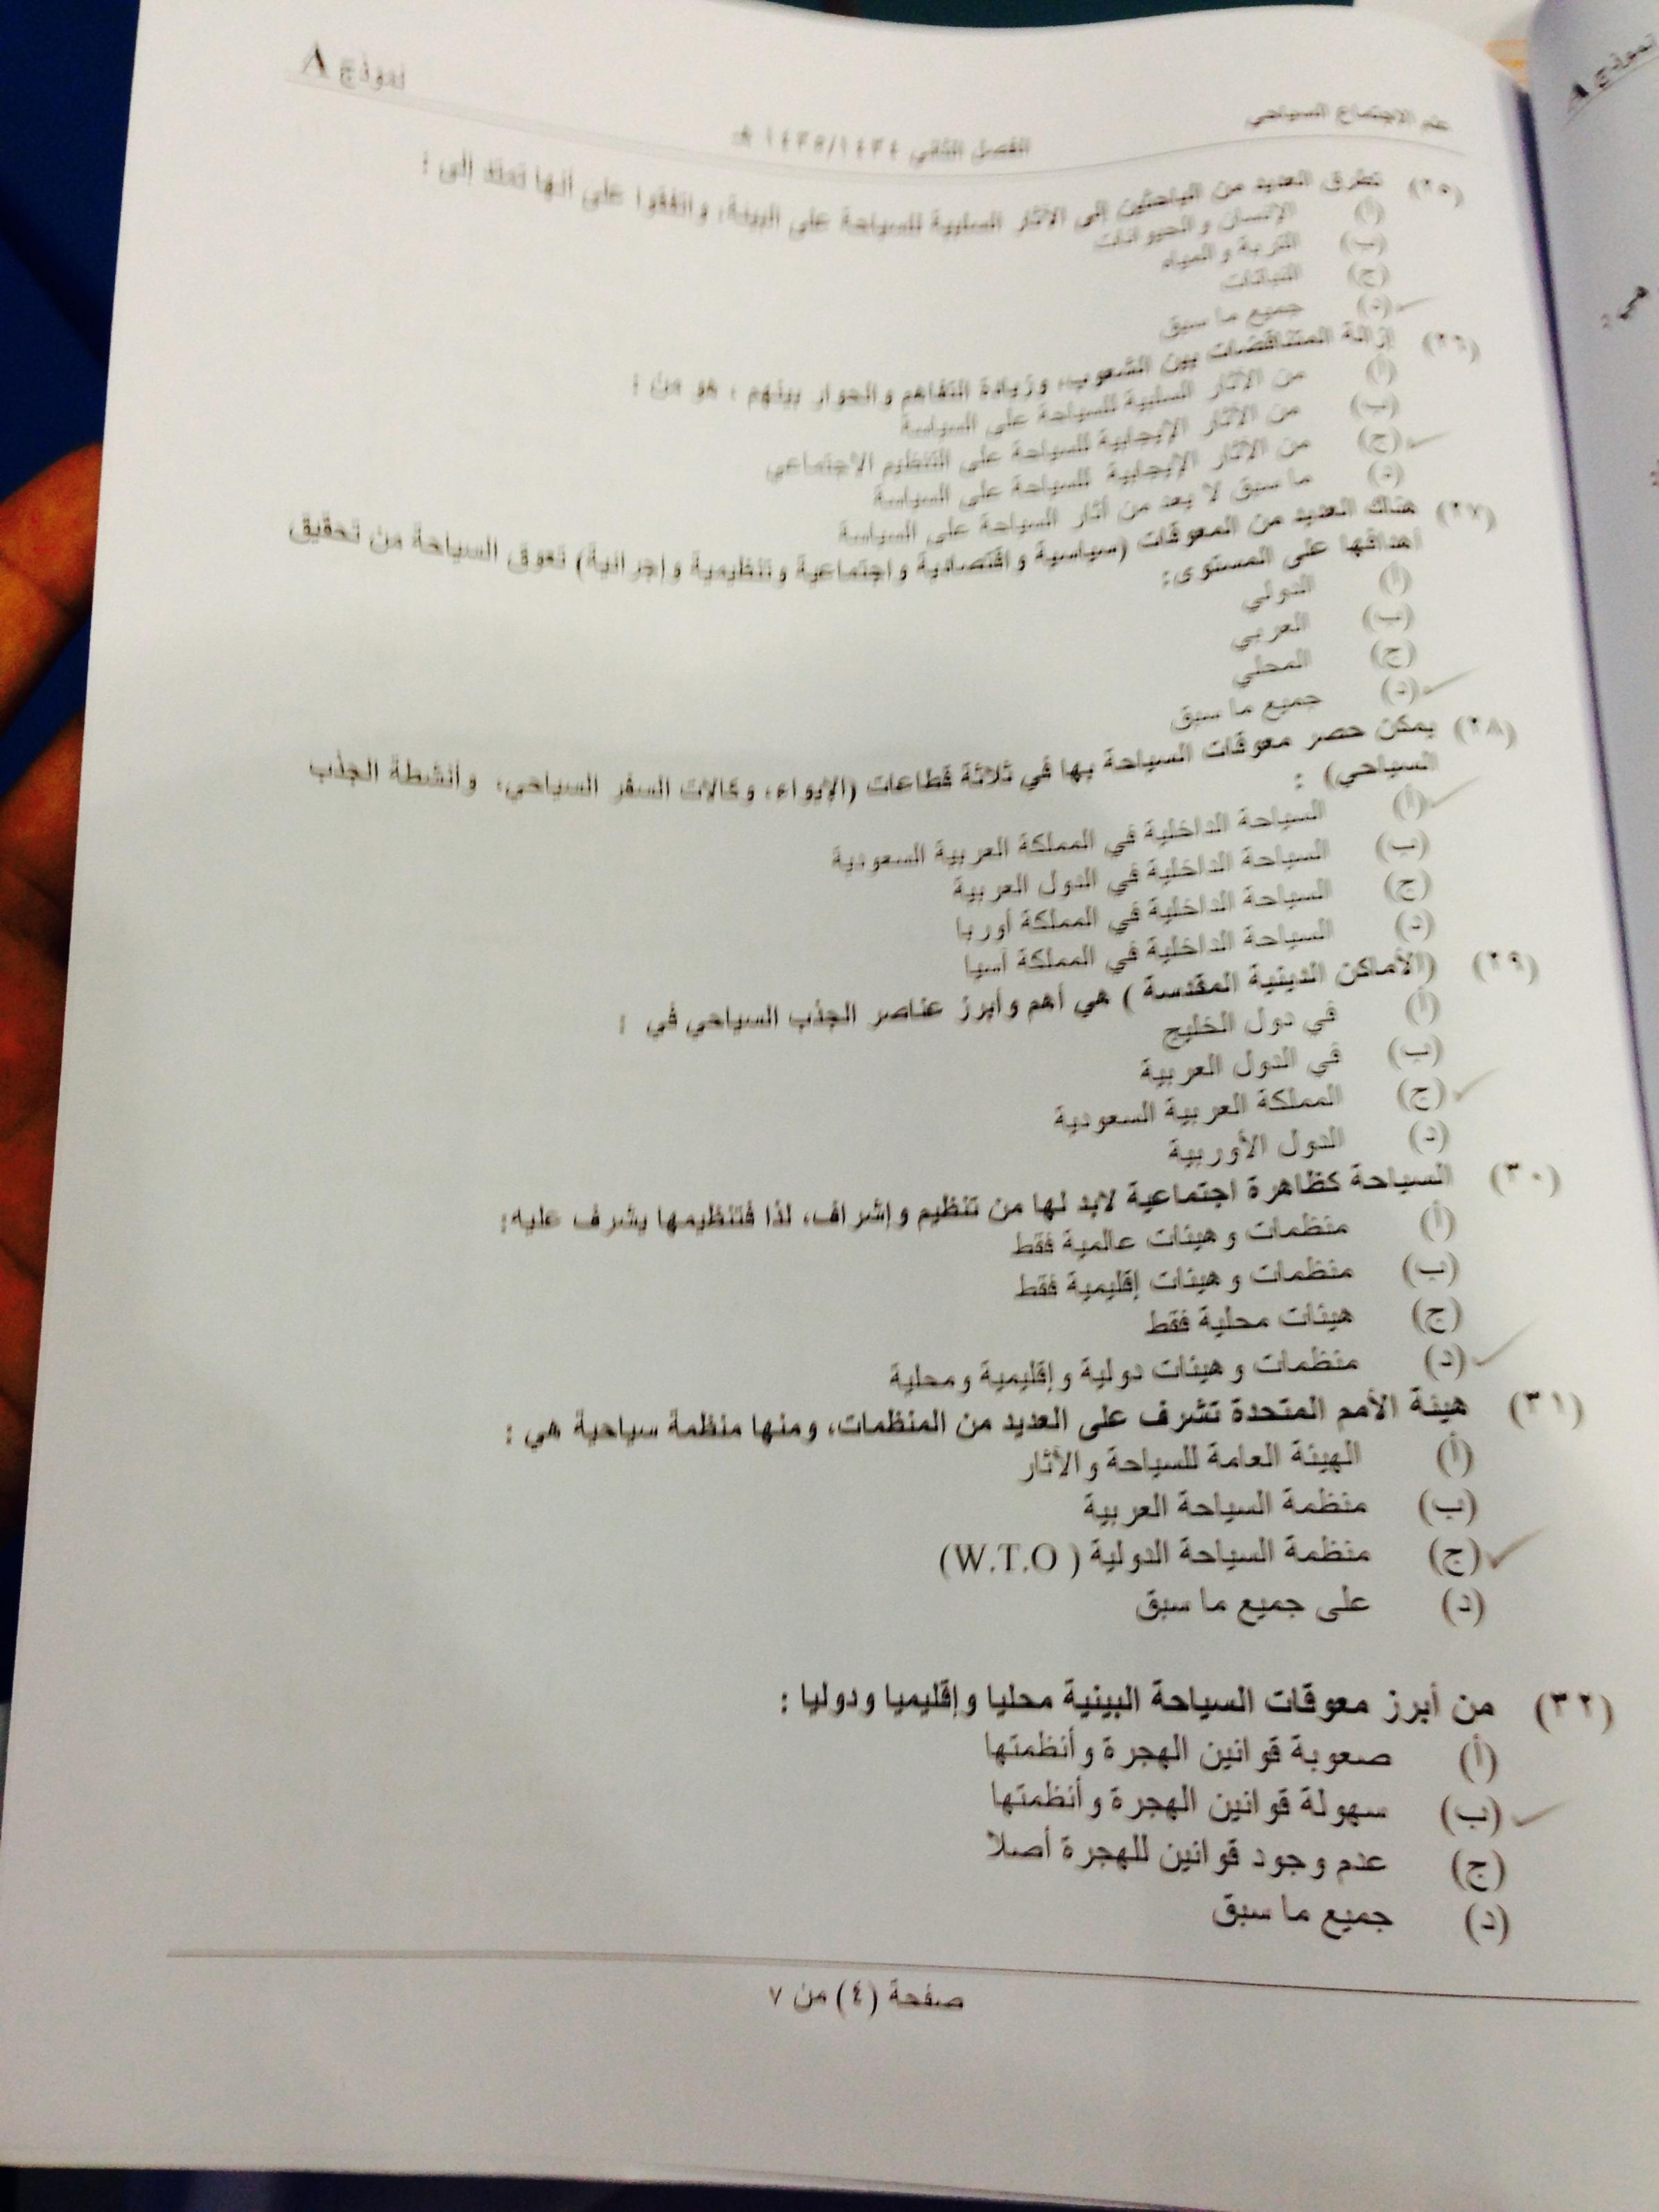 علم الاجتماع السياحي
الفصل الثاني ١٤٣٤/١٤٣٥ هـ
نموذج A
(٢٥) تطرق العديد من الباحثين إلى الآثار السلبية للسياحة على البيئة، واتفقوا على أنها تمتد إلى :
(أ) الإنسان والحيوانات
(ب) التربة والمياه
(ج) النباتات
(د) جميع ما سبق
(٢٦) إزالة المتناقضات بين الشعوب، وزيادة التفاهم والحوار بينهم ، هو من :
(أ) من الآثار السلبية للسياحة على السياسة
(ب) من الآثار الإيجابية للسياحة على التنظيم الاجتماعي
(ج) من الآثار الإيجابية للسياحة على السياسة
(د) ما سبق لا يعد من آثار السياحة على السياسة
(٢٧) هناك العديد من المعوقات (سياسية واقتصادية واجتماعية وتنظيمية وإجرائية) تعوق السياحة من تحقيق
أهدافها على المستوى:
(أ) الدولي
(ب) العربي
(ج) المحلي
(د) جميع ما سبق
(٢٨) يمكن حصر معوقات السياحة بها في ثلاثة قطاعات (الإيواء، وكالات السفر السياحي، وأنشطة الجذب
السياحي) :
(أ) السياحة الداخلية في المملكة العربية السعودية
(ب) السياحة الداخلية في الدول العربية
(ج) السياحة الداخلية في المملكة أوربا
(د) السياحة الداخلية في المملكة آسيا
(٢٩) (الأماكن الدينية المقدسة ) هي أهم وأبرز عناصر الجذب السياحي في :
(أ) في دول الخليج
(ب) في الدول العربية
(ج) المملكة العربية السعودية
(د) الدول الأوربية
(٣٠) السياحة كظاهرة اجتماعية لابد لها من تنظيم وإشراف، لذا فتنظيمها يشرف عليه:
(أ) منظمات وهيئات عالمية فقط
(ب) منظمات وهيئات إقليمية فقط
(ج) هيئات محلية فقط
(د) منظمات وهيئات دولية وإقليمية ومحلية
(٣١) هيئة الأمم المتحدة تشرف على العديد من المنظمات، ومنها منظمة سياحية هي :
(أ) الهيئة العامة للسياحة والآثار
(ب) منظمة السياحة العربية
(ج) منظمة السياحة الدولية ( W.T.O)
(د) على جميع ما سبق
(٣٢) من أبرز معوقات السياحة البينية محليا وإقليميا ودوليا :
(أ) صعوبة قوانين الهجرة وأنظمتها
(ب) سهولة قوانين الهجرة وأنظمتها
(ج) عدم وجود قوانين للهجرة أصلا
(د) جميع ما سبق
صفحة (٤) من ٧
نموذج A
هي :